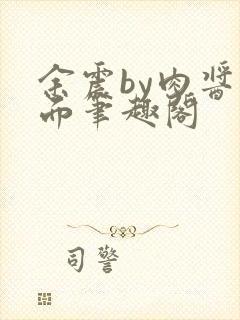 余震by肉酱
而笔趣阁
司警